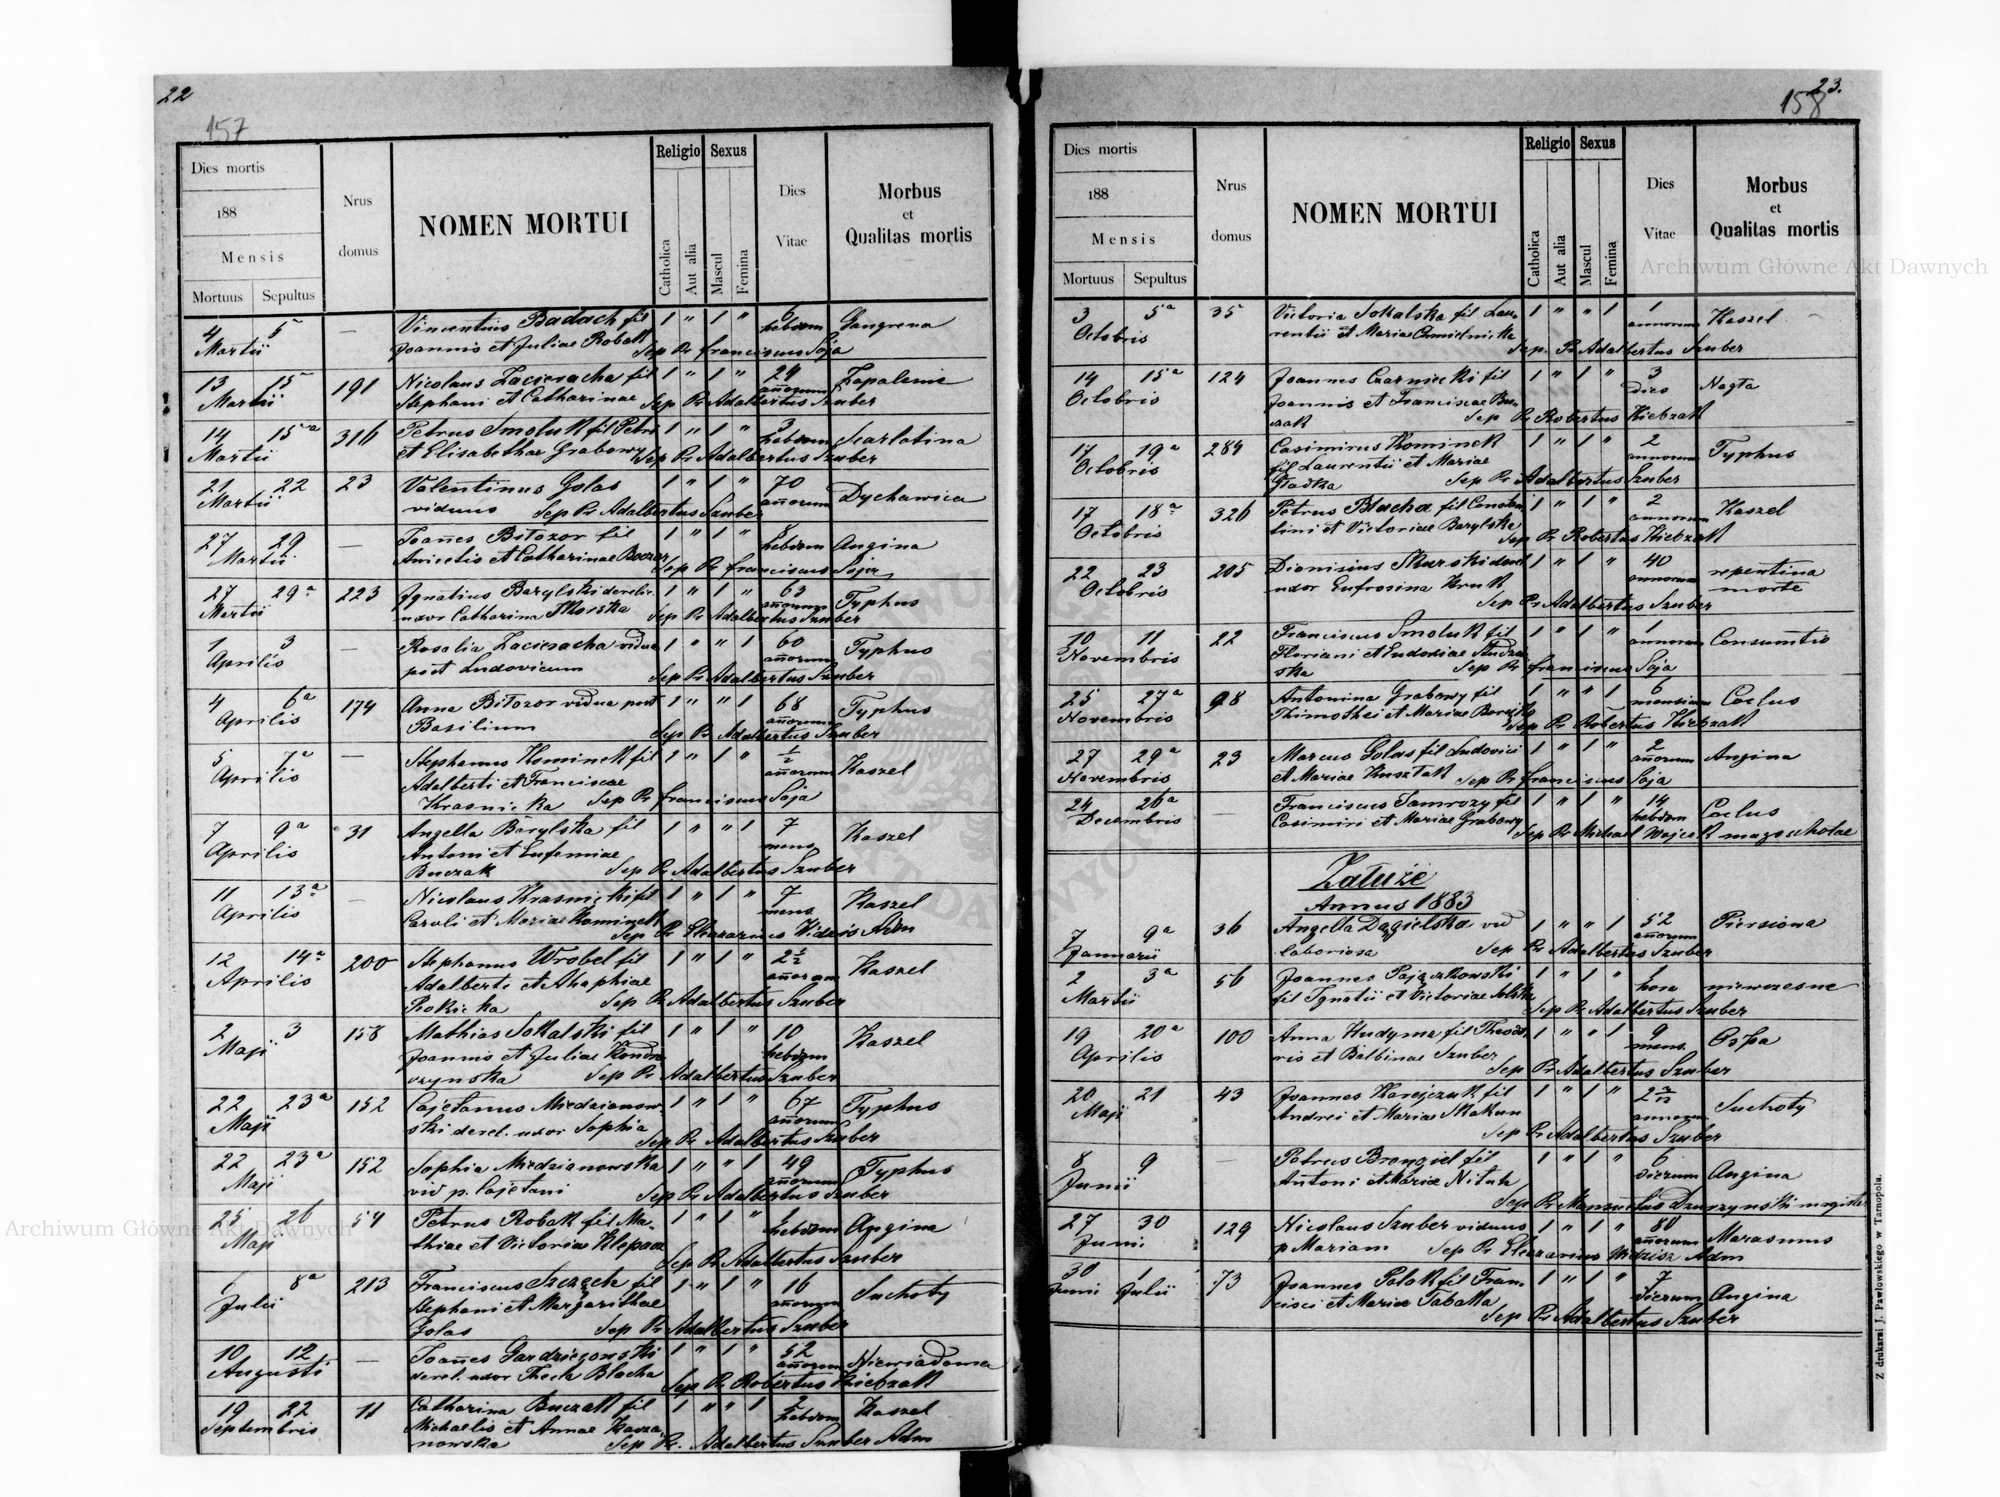 22
157
Dies mortis
188
Mensis
Mortuus Sepultus
Nrus
domus
NOMEN MORTUI
Religio Sexus
Catholica
Aut alia
Mascul
Femina
Dies
Vitae
Morbus
et
Qualitas mortis
4 5 — Vincentius Badach fil 1 " 1 " 6 Gangrena
Martii Joannis et Juliae Robak hebdom
Sep Pr franciscus Soja
13 15 191 Nicolaus Zacieracha fil 1 " 1 " 24 Zapalenie
Martii Stephani et Catharinae añorum
Sep Pr Adalbertus Szuber
14 15a 316 Petrus Smoluk fil Petri 1 " 1 " 3 Scarlatina
Martii et Elisabethae Grabowy hebdom
Sep Pr Adalbertus Szuber
21 22 23 Valentinus Golas 1 " 1 " 70 Dychawica
Martii viduus añorum
Sep Pr Adalbertus Szuber
27 29 — Joañes Bitozor fil 1 " 1 " Angina
Martii Anicetis et Catharinae hebdom
Sep Pr franciscus Soja
27 29a 223 Ignatius Barylski derelic. 1 " 1 " 63 Typhus
Martii uxor Catharina añorum
Sep Pr Adalbertus Szuber
1 3 — Rosalia Zacieracha vidua 1 " " 1 60 Typhus
Aprilis post Ludovicum añorum
Sep Pr Adalbertus Szuber
4 6a 174 Anna Bitozor vidua post 1 " " 1 68 Typhus
Aprilis Basilium añorum
Sep Pr Adalbertus Szuber
5 7a — Stephanus Kominek fil 1 " 1 " ½ Kaszel
Aprilis Adalberti et Franciscae añorum
Krasnicka Sep Pr franciscus Soja
7 9a 31 Angella Barylska fil 1 " " 1 7 Kaszel
Aprilis Antoni et Eufemiae mens
Buczak Sep Pr Adalbertus Szuber
11 13a — Nicolaus Krasnicki fil 1 " 1 " 7 Kaszel
Aprilis Caroli et Mariae Kominek mens
Sep Pr Eleazarius Adm
12 14a 200 Stephanus Wrobel fil 1 " 1 " 2½ Kaszel
Aprilis Adalberti et Ahaphiae añorum
Rokicka Sep Pr Adalbertus Szuber
2 3 158 Mathias Sokalski fil 1 " 1 " 10 Kaszel
Maji Joannis et Juliae hebdom
Sep Pr Adalbertus Szuber
22 23a 152 Cajetanus Miedzianow- 1 " 1 " 67 Typhus
Maji ski derel. uxor Sophia añorum
Sep Pr Adalbertus Szuber
22 23a 152 Sophia Miedzianowska 1 " " 1 49 Typhus
Maji vid p. Cajetani añorum
Sep Pr Adalbertus Szuber
25 26 54 Petrus Robak fil Ma- 1 " 1 " Angina
Maji thiae et Victoriae hebdom
Sep Pr Adalbertus Szuber
6 8a 213 Franciscus fil 1 " 1 " 16 Suchoty
Julii Stephani et Margarithae añorum
Golas Sep Pr Adalbertus Szuber
10 12 — Joañes Gardziegowski 1 " 1 " 52 Niewiadoma
Augusti derel. uxor Thecla Blacha añorum
Sep Pr Robertus Kiebzak
19 22 11 Catharina Buczak fil 1 " " 1 2 Kaszel
Septembris Michaelis et Annae hebdom
nowska Sep Pr. Adalbertus Szuber Adm
23.
158
Dies mortis
188
Mensis
Mortuus Sepultus
Nrus
domus
NOMEN MORTUI
Religio Sexus
Catholica
Aut alia
Mascul
Femina
Dies
Vitae
Morbus
et
Qualitas mortis
3 5a 35 Victoria Sokalska fil Lau- 1 " " 1 1 Kaszel
Octobris rentii et Mariae Chmielnicka annorum
Sep. Pr Adalbertus Szuber
14 15a 124 Joannes Czarniecki fil 1 " 1 " 3 Nagła
Octobris Joannis et Franciscae Bu- dies
czak Sep Pr Robertus Kiebzak
17 19a 284 Casimirus Kominek 1 " 1 " 2 Typhus
Octobris fil Laurentii et Mariae annorum
Gładka Sep Pr Adalbertus Szuber
17 18a 326 Petrus Blacha fil Constan 1 " 1 " 2 Kaszel
Octobris tini et Victoriae Barylska annorum
Sep Pr Robertus Kiebzak
22 23 205 Dionisius Skurski derel 1 " 1 " 40 repentina
Octobris uxor Eufrosina Kruk annorum morte
Sep Pr Adalbertus Szuber
10 11 22 Franciscus Smoluk fil 1 " 1 " 1 Consumtio
Novembris Floriani et Eudoxiae annorum
ska Sep Pr franciscus Soja
25 27a 98 Antonina Grabowy fil 1 " " 1 6 Coclus
Novembris Thimothei et Mariae mensium
Sep Pr Robertus Kiebzak
27 29a 23 Marcus Golas fil Ludovici 1 " 1 " 2 Angina
Novembris et Mariae Kusztak añorum
Sep Pr franciscus Soja
24 26a — Franciscus Samrozy fil 1 " 1 " 14 Coclus
Decembris Casimiri et Mariae Grabowy hebdom
Sep Pr Michael Wojcik mag scholae
Załuże
Annus 1883
7 9a 36 Angella Dągielska vid 1 " " 1 52 Piersiowa
Januarii laboriosa añorum
Sep Pr Adalbertus Szuber
2 3a 56 Joannes Pajączkowski 1 " 1 " 1 niewczesne
Martii fil Ignatii et Victoriae Solska hora
Sep Pr Adalbertus Szuber
19 20a 100 Anna Hudyma fil Theodo- 1 " " 1 9 Ospa
Aprilis ris et Balbinae Szuber mens.
Sep Pr Adalbertus Szuber
20 21 43 Joannes Harejczuk fil 1 " 1 " Suchoty
Maji Andrei et Mariae Skakun annorum
Sep Pr Adalbertus Szuber
8 9 — Petrus Brengiel fil 1 " 1 " 6 Angina
Junii Antoni et Mariae dierum
Sep Pr Mansuetus magister
27 30 129 Nicolaus Szuber viduus 1 " 1 " 80 Marasmus
Junii p Mariam añorum
Sep Pr Eleazarius Adm
30 1 73 Joannes Polak fil Fran- 1 " 1 " 7 Angina
Junii Julii cisci et Mariae Tabałka dierum
Sep Pr Adalbertus Szuber
Z drukarni J. Pawłowskiego w Tarnopolu.
Archiwum Główne Akt Dawnych
Archiwum Główne Akt Dawnych